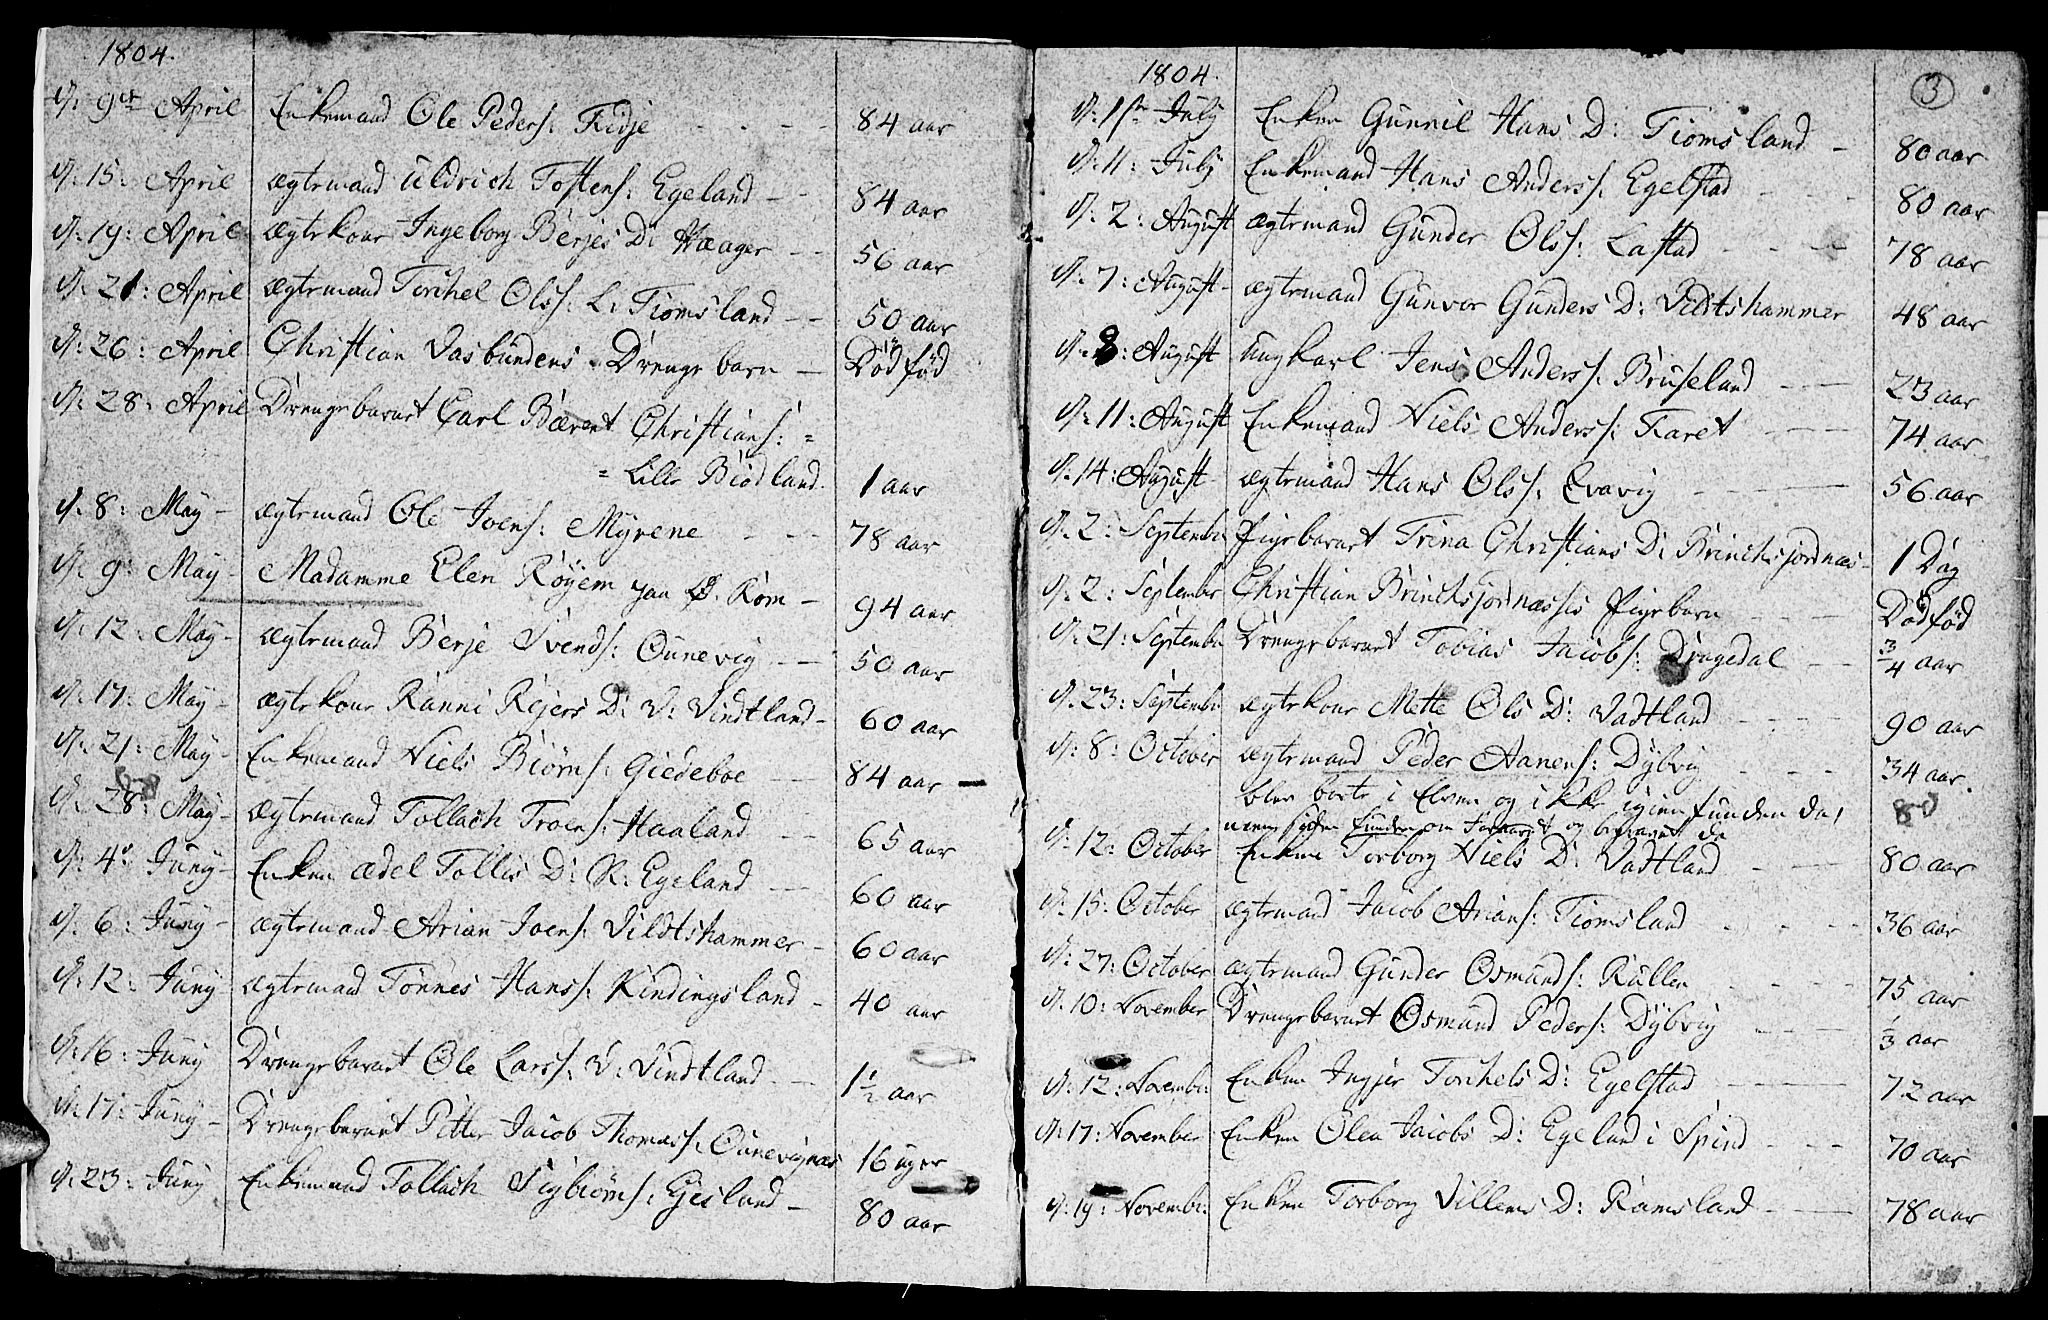 1804.
d: 9de April Enkemand Ole Peders: Fidje - - - 84 aar
d: 15: April ægtemand Uldrich Tostens: Egeland - - 84 aar
d: 19: April ægtekone Ingeborg Berjes D: Hæager - - 56 aar
d: 21: April ægtemand Torchel Ols: L: Tiomsland - - 50 aar
d: 26: April Christian Vasbundens Drenge barn - Dödföd
d: 28: April Drengebarnet Carl Bærent Christians: =
= Lille Biødland. 1 aar
d: 8: May - ægtemand Ole Joens: Myrene - - - 78 aar
d: 9: May - Madamme Elen Röyem paa Ø. Röm - 94 aar
d: 12: May - ægtemand Berje Svends: Ounevig - - 50 aar
d: 17: May - ægtekone Ranni Rejers D: V: Vindtland - 60 aar
d: 21: May - Enkemand Niels Biörns: Giedeboe - - 84 aar
d: 28: May - ægtemand Tollach Troens: Haaland - - 65 aar
d: 4de Juny - Enken Ædel Tollis D: N: Egeland - - 60 aar
d: 6: Juny - ægtemand Arian Joens: Vildtshammer - 60 aar
d: 12: Juny - ægtemand Tönnes Hans: Kindingsland - 40 aar
d: 16: Juny Drengebarnet Ole Lars: V: Vindtland - - 1 1/2 aar
d: 17: Juny - Drengebarnet Pitter Jacob Thomas: Ounevignæs 16 uger
d: 23: Juny Enkemand Tollach Sigbiörns: Gjesland - 80 aar
3
1804.
d: 1ste July Enken Gunnil Hans D: Tiomsland - 80 aar
d: 11: July Enkemand Hans Anders: Egelstad - - - 80 aar
d: 2: August ægtemand Gunder Ols: Lastad - - - 78 aar
d: 7: August - ægtemand Gunvor Gunders D: Vildtshammer 48 aar
d: 8: August Ungkarl Jens Anders: Bruseland - - - 23 aar
d: 11: August Enkemand Niels Anders: Faret - - - 74 aar
d: 14: August ægtemand Hans Ols: Qvavig - - - 56 aar
d: 2: September Pigebarnet Trina Christians D: Brinchsjordnæs - 1 Dag
d: 2: September Christian Brinchsjordnæsses Pigebarn - - - Dödföd
d: 21: September Drengebarnet Tobias Jacobs: Dragedal - - 3/4 aar
d: 23: September ægtekone Mette Ols D: Vadtland - - - 90 aar
d: 8: October ægtemand Peder Aanens: Dybvig - - - 34 aar.
blev borte i Elven og ikke igien funden da,
men siden funden om Foraaret og begravet da
d: 12: October Enken Torborg Niels D: Vadtland - - 80 aar
d: 15: October ægtemand Jacob Arians: Tiomsland - - - 36 aar
d: 27: October ægtemand Gunder Osmunds: Kullen - - - 75 aar
d: 10: November Drengebarnet Osmund Peders: Dybvig - - 1/3 aar
d: 12: November Enken Ingjer Torchels D: Egelstad - - - 72 aar
d: 17: November Enken Olea Jacobs D: Egeland i Spind - - - 70 aar
d: 19: November Enken Torborg Villems D: Ramsland - - - 78 aar